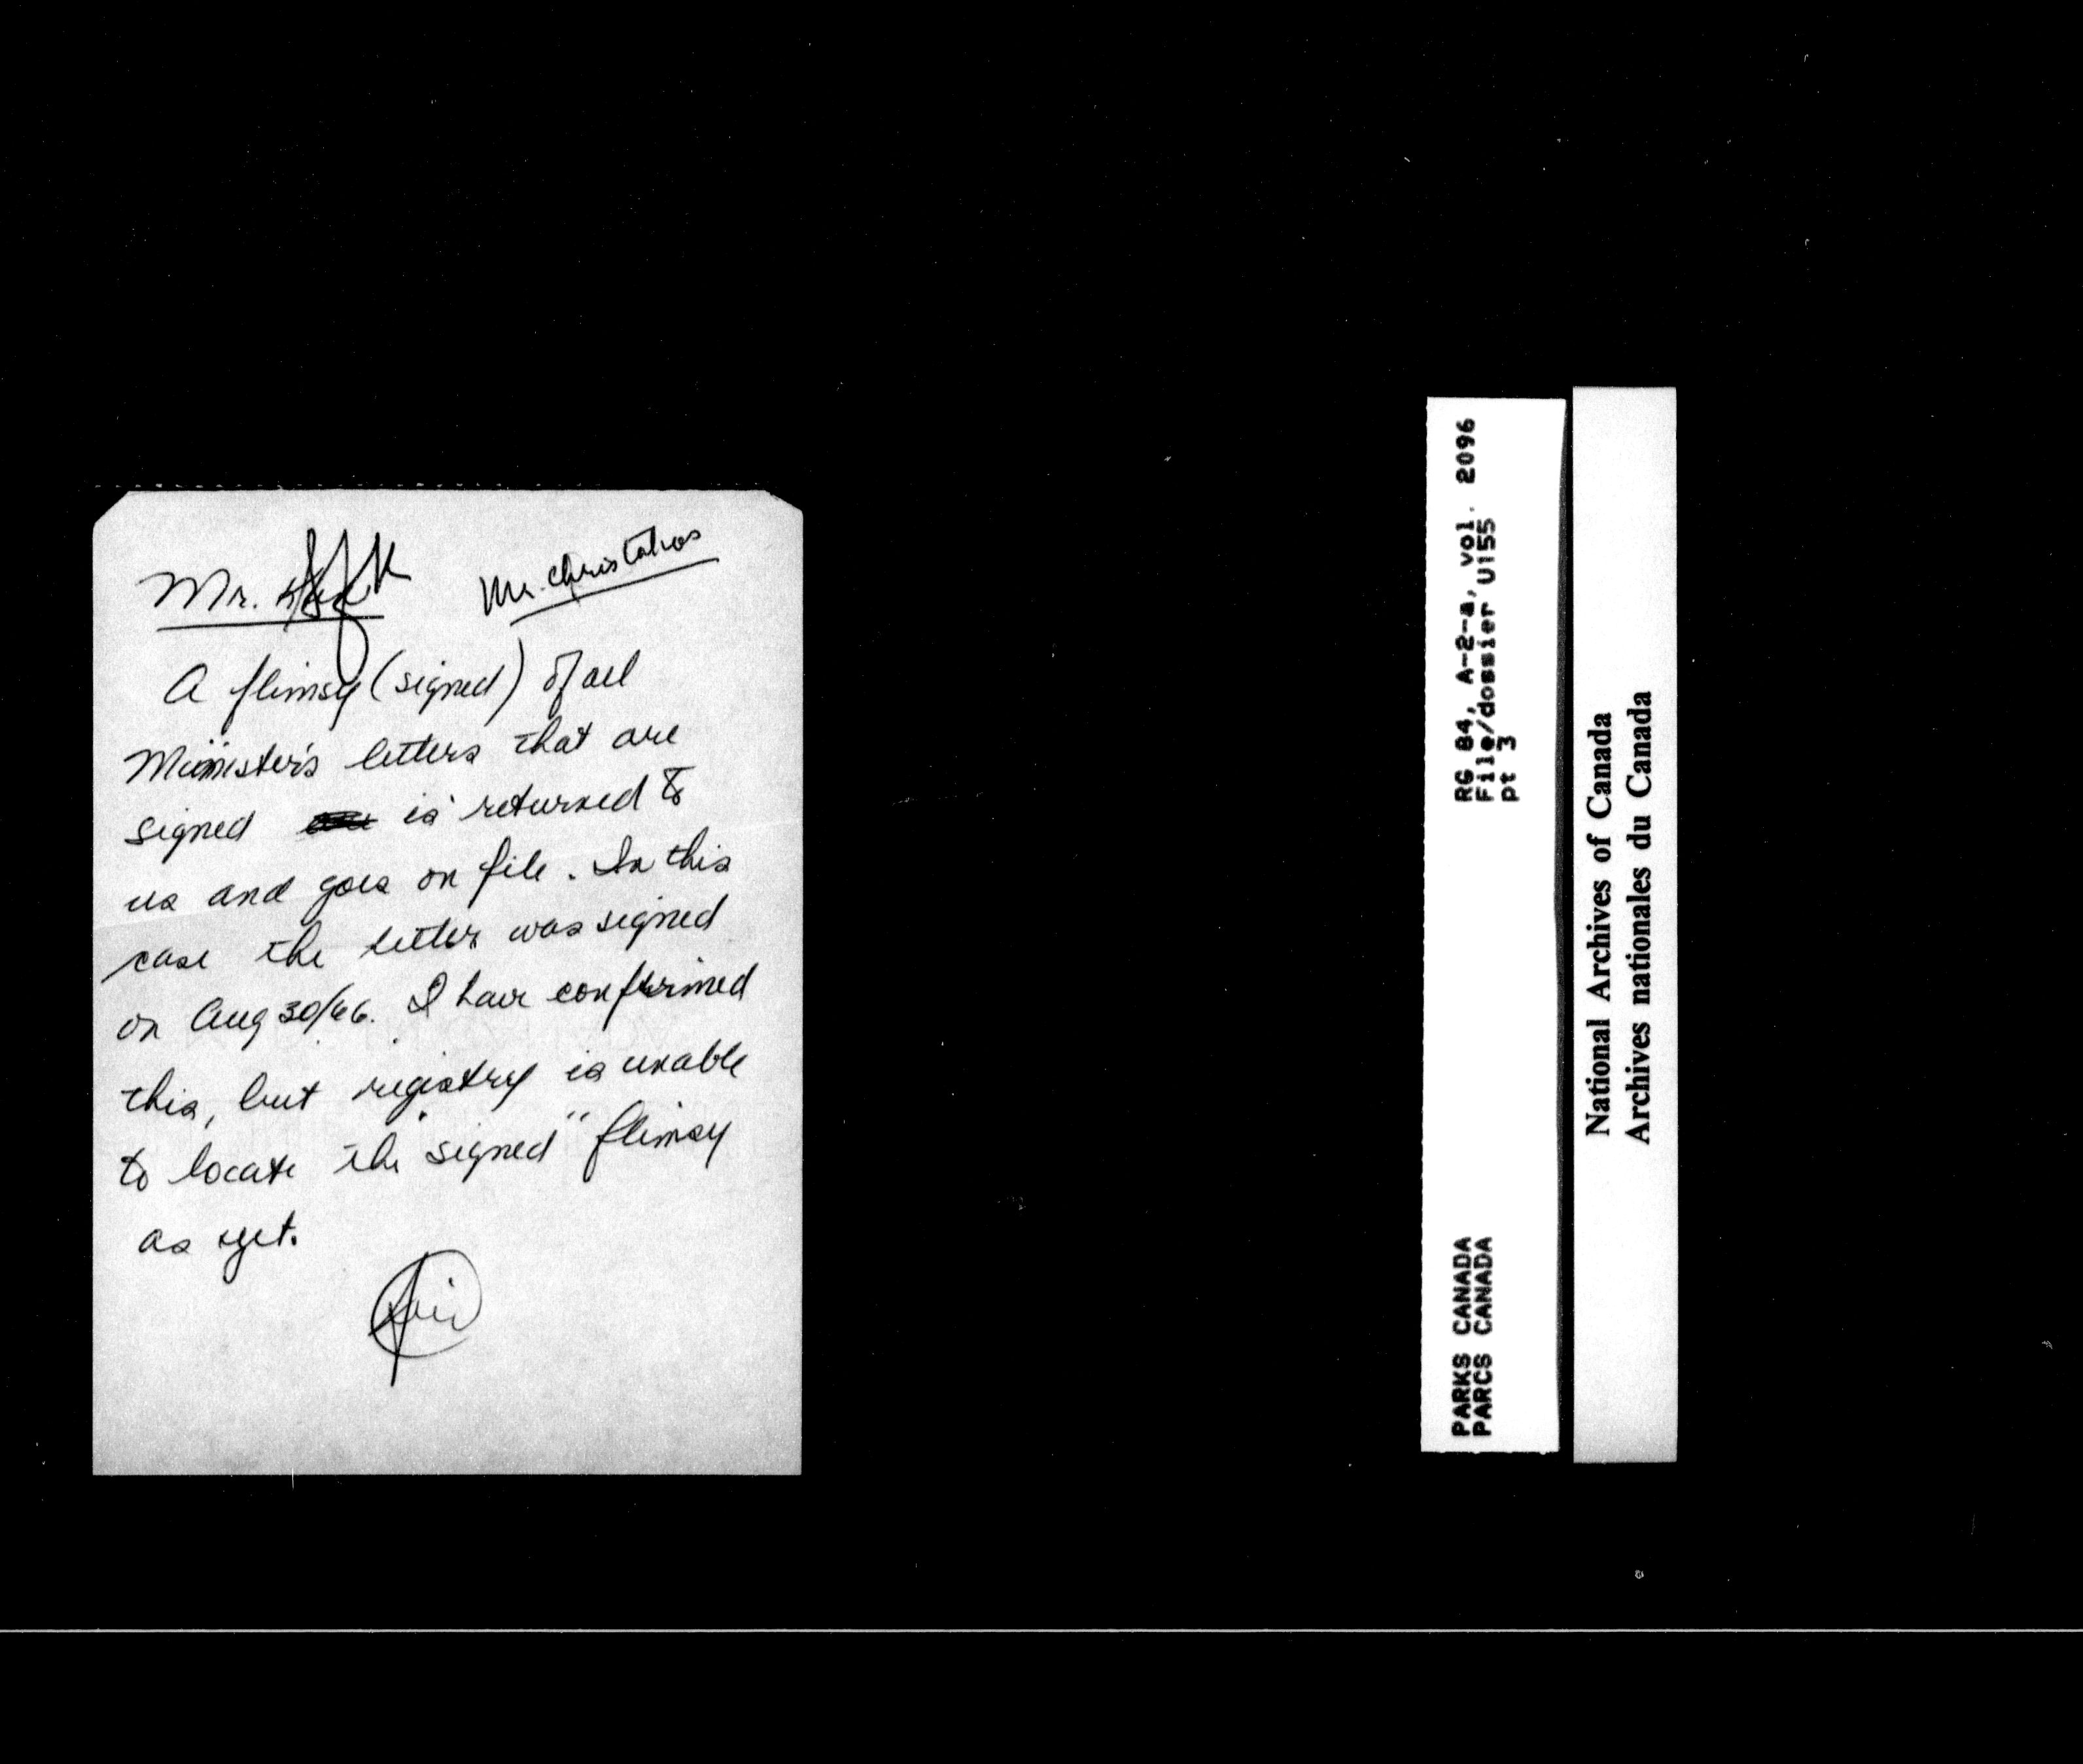 Mr.
Mr. Christakos
A flimsy (signed) of all
Minister's letters that are
signed is returned to
us and goes on file. In this
case the letter was signed
on Aug 30/66. I have confirmed
this, but registry is unable
to locate the "signed" flimsy
as yet.
RG 84, A-2-a, vol. 2096
File/dossier U155
pt 3
PARKS CANADA
PARCS CANADA
National Archives of Canada
Archives nationales du Canada